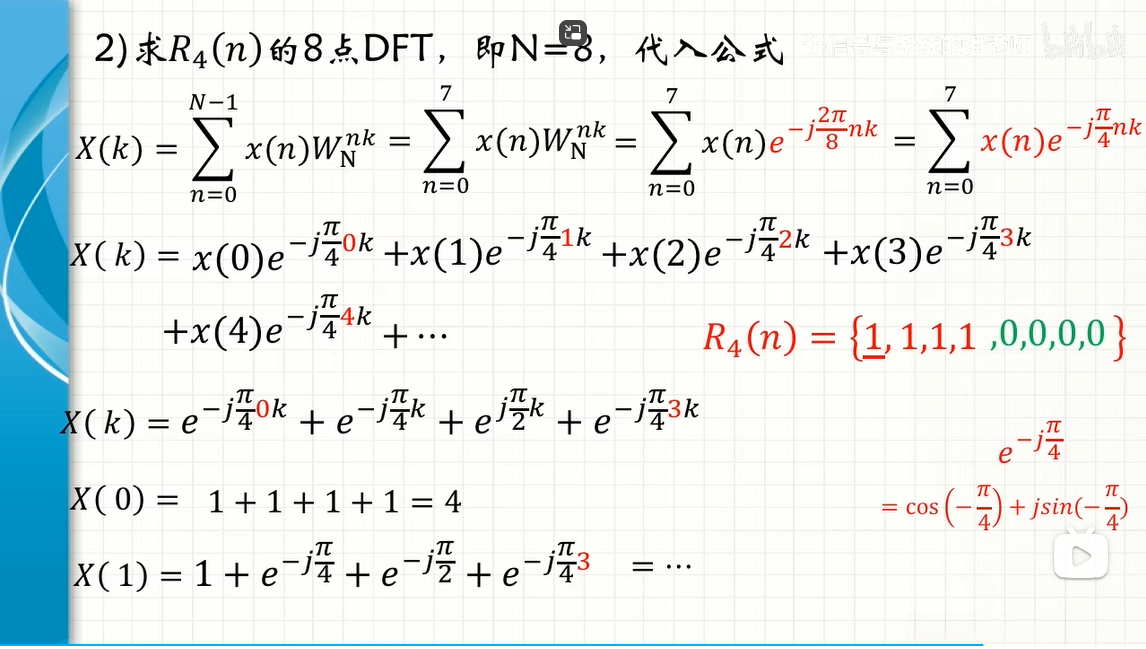 2)求R₄(n)的8点DFT，即N=8，代入公式
X(k) = ∑_{n=0}^{N−1} x(n)W_N^{nk} = ∑_{n=0}^{7} x(n)W_N^{nk} = ∑_{n=0}^{7} x(n)e^{−j\frac{2π}{8}nk} = ∑_{n=0}^{7} x(n)e^{−j\frac{π}{4}nk}
X(k) = x(0)e^{−j\frac{π}{4}0k} +x(1)e^{−j\frac{π}{4}1k} +x(2)e^{−j\frac{π}{4}2k} +x(3)e^{−j\frac{π}{4}3k}
+x(4)e^{−j\frac{π}{4}4k} + ⋯
R₄(n) = {1, 1,1,1 ,0,0,0,0 }
X(k) = e^{−j\frac{π}{4}0k} + e^{−j\frac{π}{4}k} + e^{j\frac{π}{2}k} + e^{−j\frac{π}{4}3k}
e^{−j\frac{π}{4}}
= cos(−\frac{π}{4}) + jsin(−\frac{π}{4})
X(0) = 1 + 1 + 1 + 1 = 4
X(1) = 1 + e^{−j\frac{π}{4}} + e^{−j\frac{π}{2}} + e^{−j\frac{π}{4}3} = ⋯